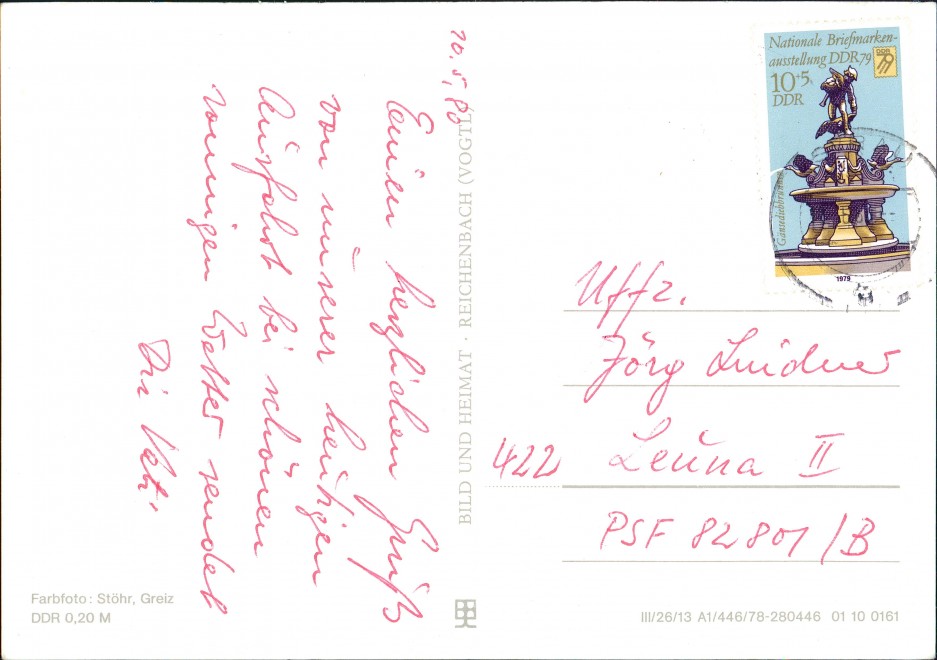 10.5.80
Einen herzlichen Gruß
von unserer heutigen
Ausfahrt bei schönen
sonnigen Wetter sendet
Farbfoto: Stöhr, Greiz
DDR 0,20 M
BILD UND HEIMAT · REICHENBACH (VOGTL)
Nationale Briefmarken-
ausstellung DDR 79
DDR
79
10+5
DDR
Gänsediebbrunnen
1979
Uffz.
Jörg Lindner
422 Leuna II
PSF 82801/B
III/26/13 A1/446/78-280446 01 10 0161